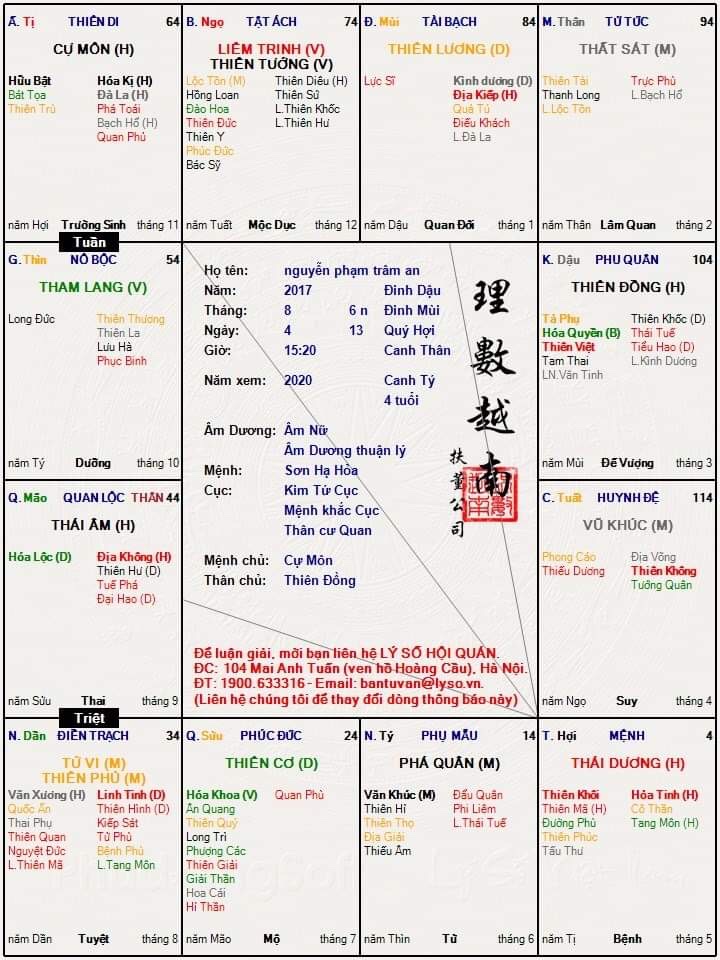 Ấ. Tị THIÊN DI 64
CỰ MÔN (H)
Hữu Bật Hóa Kị (H)
Bát Tọa Đà La (H)
Thiên Trù Phá Toái
Bạch Hổ (H)
Quan Phù
năm Hợi Trường Sinh tháng 11
B. Ngọ TẬT ÁCH 74
LIÊM TRINH (V)
THIÊN TƯỚNG (V)
Lộc Tồn (M) Thiên Diêu (H)
Hồng Loan Thiên Sứ
Đào Hoa L.Thiên Khốc
Thiên Đức L.Thiên Hư
Thiên Y
Phúc Đức
Bác Sỹ
năm Tuất Mộc Dục tháng 12
Đ. Mùi TÀI BẠCH 84
THIÊN LƯƠNG (D)
Lực Sĩ Kình dương (D)
Địa Kiếp (H)
Quả Tú
Điếu Khách
L.Đà La
năm Dậu Quan Đới tháng 1
M. Thân TỬ TỨC 94
THẤT SÁT (M)
Thiên Tài Trực Phù
Thanh Long L.Bạch Hổ
L.Lộc Tồn
năm Thân Lâm Quan tháng 2
Tuần
G. Thìn NÔ BỘC 54
THAM LANG (V)
Long Đức Thiên Thương
Thiên La
Lưu Hà
Phục Binh
năm Tý Dưỡng tháng 10
Họ tên: nguyễn phạm trâm an
Năm: 2017 Đinh Dậu
Tháng: 8 6 n Đinh Mùi
Ngày: 4 13 Quý Hợi
Giờ: 15:20 Canh Thân
Năm xem: 2020 Canh Tý
4 tuổi
Âm Dương: Âm Nữ
Âm Dương thuận lý
Mệnh: Sơn Hạ Hỏa
Cục: Kim Tứ Cục
Mệnh khắc Cục
Thân cư Quan
Mệnh chủ: Cự Môn
Thân chủ: Thiên Đồng
理數越南
扶董公司
Để luận giải, mời bạn liên hệ LÝ SỐ HỘI QUÁN.
ĐC: 104 Mai Anh Tuấn (ven hồ Hoàng Cầu), Hà Nội.
ĐT: 1900.633316 - Email: bantuvan@lyso.vn.
(Liên hệ chúng tôi để thay đổi dòng thông báo này)
K. Dậu PHU QUÂN 104
THIÊN ĐỒNG (H)
Tả Phụ Thiên Khốc (D)
Hóa Quyền (B) Thái Tuế
Thiên Việt Tiểu Hao (D)
Tam Thai L.Kình Dương
LN.Văn Tinh
năm Mùi Đế Vượng tháng 3
Q. Mão QUAN LỘC THÂN 44
THÁI ÂM (H)
Hóa Lộc (D) Địa Không (H)
Thiên Hư (D)
Tuế Phá
Đại Hao (D)
năm Sửu Thai tháng 9
C. Tuất HUYNH ĐỆ 114
VŨ KHÚC (M)
Phong Cáo Địa Võng
Thiếu Dương Thiên Không
Tướng Quân
năm Ngọ Suy tháng 4
Triệt
N. Dần ĐIỀN TRẠCH 34
TỬ VI (M)
THIÊN PHỦ (M)
Văn Xương (H) Linh Tinh (D)
Quốc Ấn Thiên Hình (D)
Thai Phụ Kiếp Sát
Thiên Quan Tử Phù
Nguyệt Đức Bệnh Phù
L.Thiên Mã L.Tang Môn
năm Dần Tuyệt tháng 8
Q. Sửu PHÚC ĐỨC 24
THIÊN CƠ (D)
Hóa Khoa (V) Quan Phủ
Ân Quang
Thiên Quý
Long Trì
Phượng Các
Thiên Giải
Giải Thần
Hoa Cái
Hỉ Thần
năm Mão Mộ tháng 7
N. Tý PHỤ MẪU 14
PHÁ QUÂN (M)
Văn Khúc (M) Đẩu Quân
Thiên Hỉ Phi Liêm
Thiên Thọ L.Thái Tuế
Địa Giải
Thiếu Âm
năm Thìn Tử tháng 6
T. Hợi MỆNH 4
THÁI DƯƠNG (H)
Thiên Khôi Hỏa Tinh (H)
Thiên Mã (H) Cô Thần
Đường Phù Tang Môn (H)
Thiên Phúc
Tấu Thư
năm Tị Bệnh tháng 5